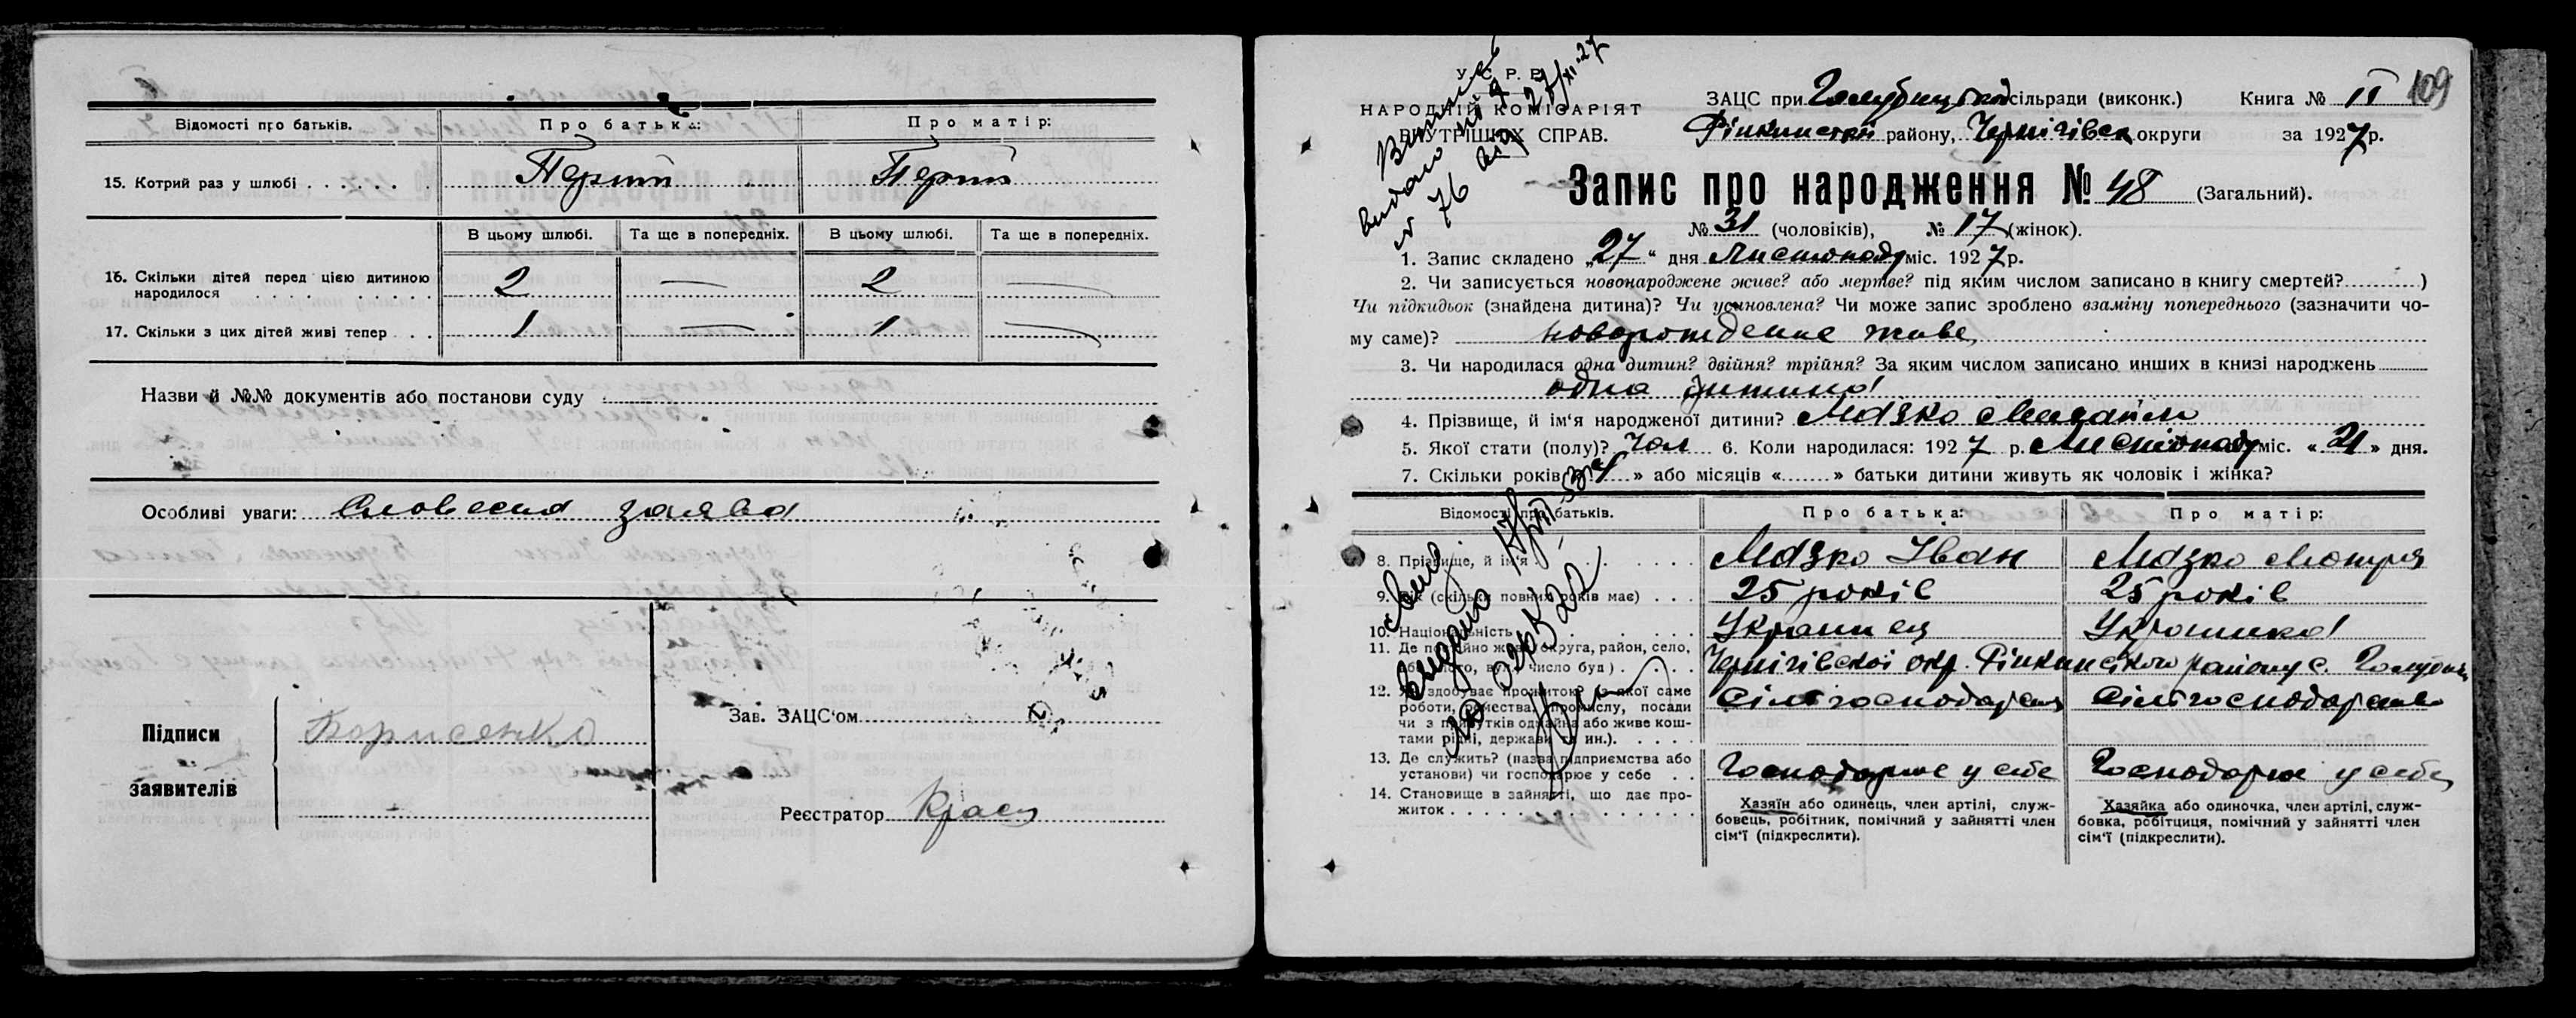 Відомості про батьків. Про батька: Про матір:
15. Котрий раз у шлюбі . . . . . . Перший Перший
В цьому шлюбі. Та ще в попередніх. В цьому шлюбі. Та ще в попередніх.
16. Скільки дітей перед цією дитиною
народилося . . . . 2 — 2 —
17. Скільки з цих дітей живі тепер . . . 1 — 1 —
Назви й №№ документів або постанови суду
Особливі уваги: Словесна заява
Підписи
заявителів
Борисенко
Зав. ЗАЦС'ом
Реєстратор
У. С. Р. Р.
НАРОДНІЙ КОМІСАРІЯТ
ВНУТРІШНІХ СПРАВ.
Витяг
видано
№ 76 від 27/XI-27
ЗАЦС при сільради (виконк.) Книга № II 109
району, Чернігівськ округи за 1927 р.
Запис про народження № 48 (Загальний).
№ 31 (чоловіків), № 17 (жінок).
1. Запис складено „27“ дня Листопаду міс. 1927 р.
2. Чи записується новонароджене живе? або мертве? під яким числом записано в книгу смертей? )
Чи підкидьок (знайдена дитина)? Чи усиновлена? Чи може запис зроблено взаміну попереднього (зазначити чо-
му саме)? новорождене живе
3. Чи народилася одна дитин? двійня? трійня? За яким числом записано инших в книзі народжень
одна дитина
4. Прізвище, й ім'я народженої дитини? Мазко Михайло
5. Якої стати (полу)? Чол 6. Коли народилася: 1927 р. Листопаду міс. «21» дня.
7. Скільки років « 4 » або місяців «.......» батьки дитини живуть як чоловік і жінка?
Відомості про батьків. Про батька: Про матір:
8. Прізвище, й ім'я . . . Мазко Іван Мазко Мотря
9. Вік (скільки повних років має) . . . 25 років 25 років
10. Національність . . . Українец Українка
11. Де постійно живе (округа, район, село,
або місто, вул., число буд.) . . . Чернігівської окр. району с.
12. Як здобуває прожиток? (з якої саме
роботи, ремества, промислу, посади
чи з прибутків од майна або живе кош-
тами рідні, держави та ин.). . . . Сільгосподарств Сільгосподарство
13. Де служить? (назва підприємства або
установи) чи господарює у себе . . Господарює у себе Господарює у себе
14. Становище в зайнятті, що дає про-
житок . . . . . . . . .
Хазяїн або одинець, член артілі, служ-
бовець, робітник, помічний у зайнятті член
сім'ї (підкреслити).
Хазяйка або одиночка, член артілі, служ-
бовка, робітниця, помічний у зайнятті член
сім'ї (підкреслити).